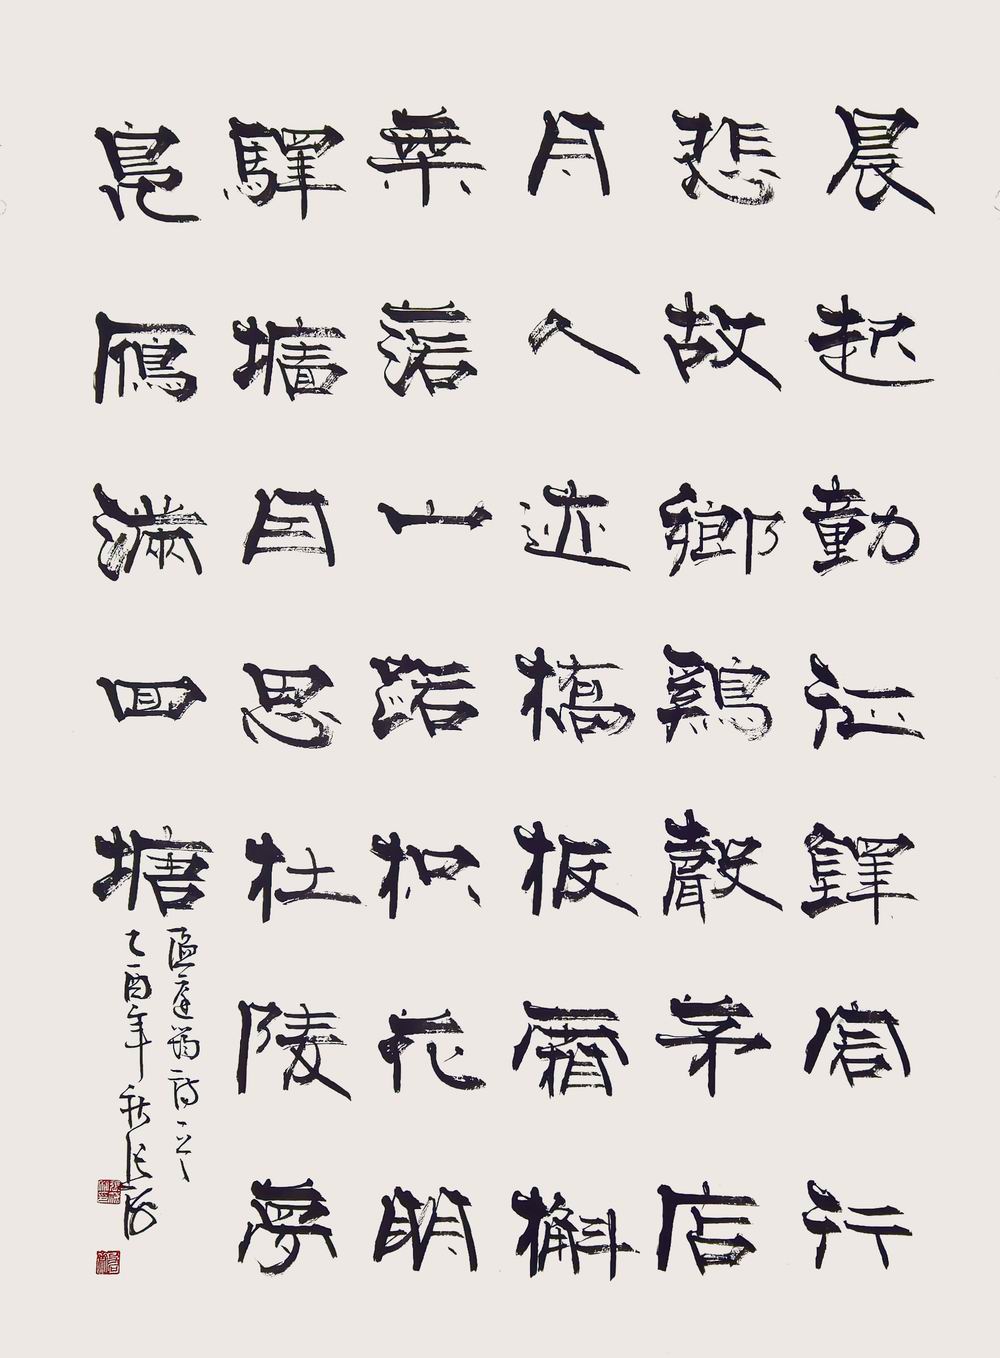 晨起動征鐸客行
悲故鄉鷄聲茅店
月人迹橋板霜槲
葉落山路枳花明
驛墻因思杜陵夢
鳧雁滿回塘
温庭筠詩
乙酉年秋張海